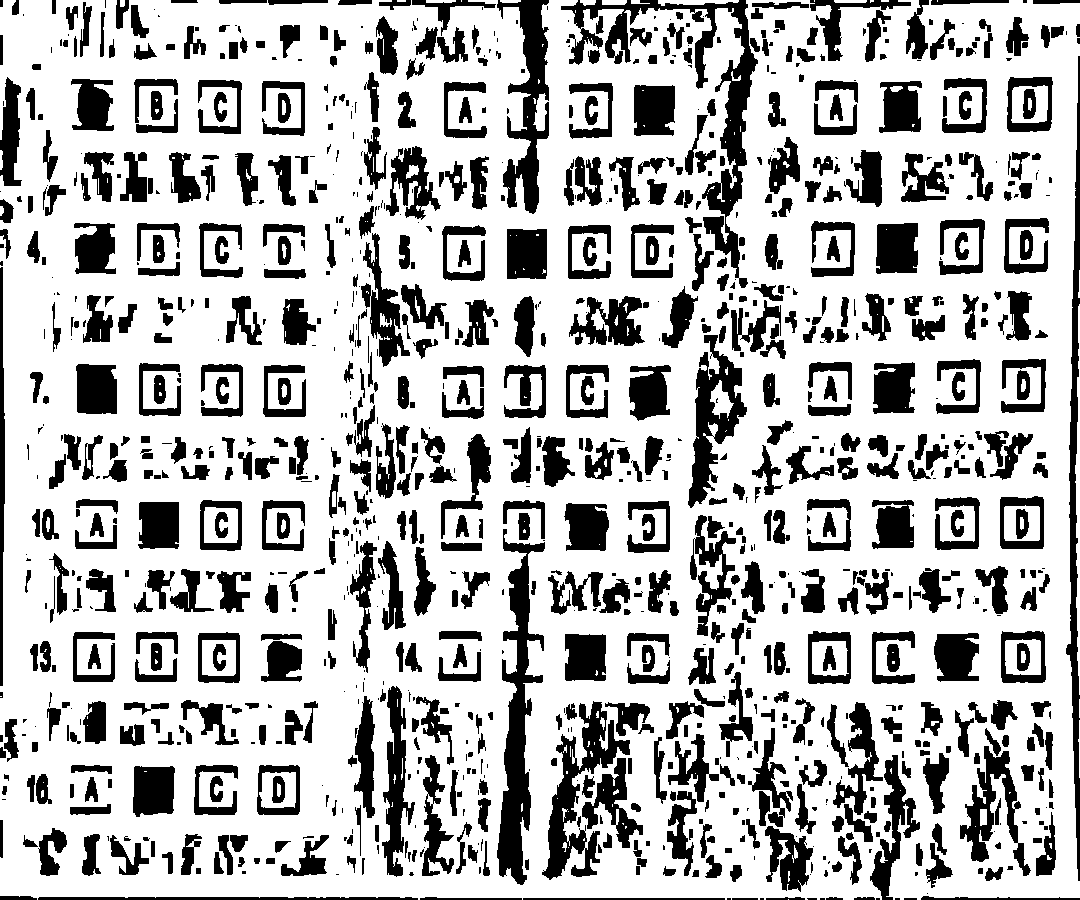 1. B C D 2. A B C 3. A C D
4. B C D 5. A C D 6. A C D
7. B C D 8. A B C 9. A C D
10. A C D 11. A B D 12. A C D
13. A B C 14. A D 15. A B D
16. A C D